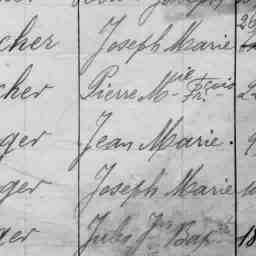 cher Joseph Marie 26
cher Pierre Mie Fçois
ger Jean Marie.
ger Joseph Marie
ger Jules Jn Bapte 18